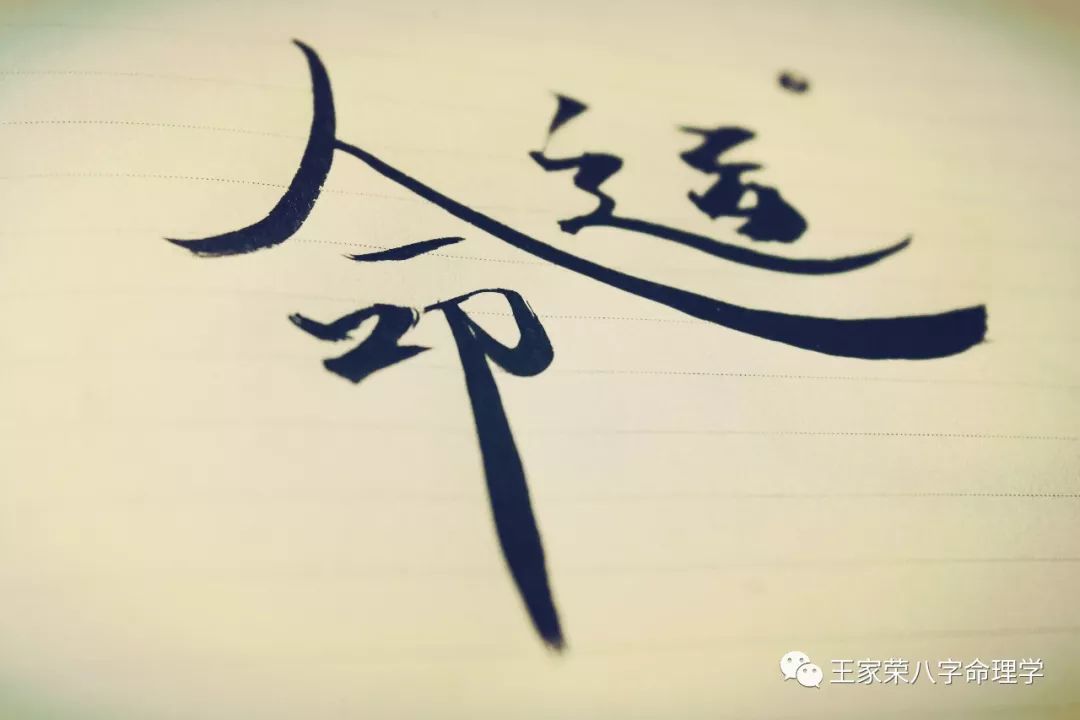 命运
王家荣八字命理学